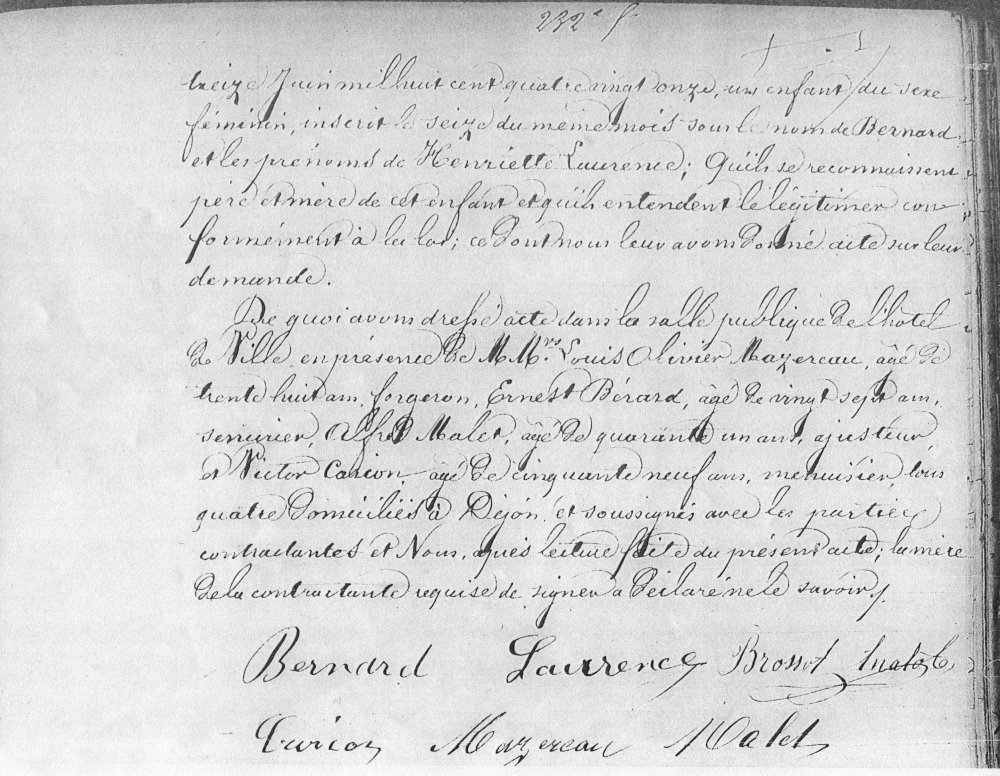 232e f.
treize Juin mil huit cent quatre vingt onze, un enfant du sexe
féminin, inscrit le seize du même mois sous le nom de Bernard
et les prénoms de Henriette Laurence; Qu'ils se reconnaissent
père et mère de cet enfant et qu'ils entendent le légitimer con
formément à la loi; ce dont nous leur avons donné acte sur leur
demande.
De quoi avons dressé acte dans la salle publique de l'hôtel
de Ville, en présence de MMrs Louis Olivier Mazereau, âgé de
trente huit ans, forgeron, Ernest Bérard, âgé de vingt sept ans,
serrurier, Alfred Malet, âgé de quarante un ans, ajusteur
et Victor Carion, âgé de cinquante neuf ans, menuisier, tous
quatre domiciliés à Dijon, et soussignés avec les parties
contractantes et Nous, après lecture faite du présent acte; la mère
de la contractante requise de signer a déclaré ne le savoir.
Bernard Laurence Brossot
Carion Mazereau Malet